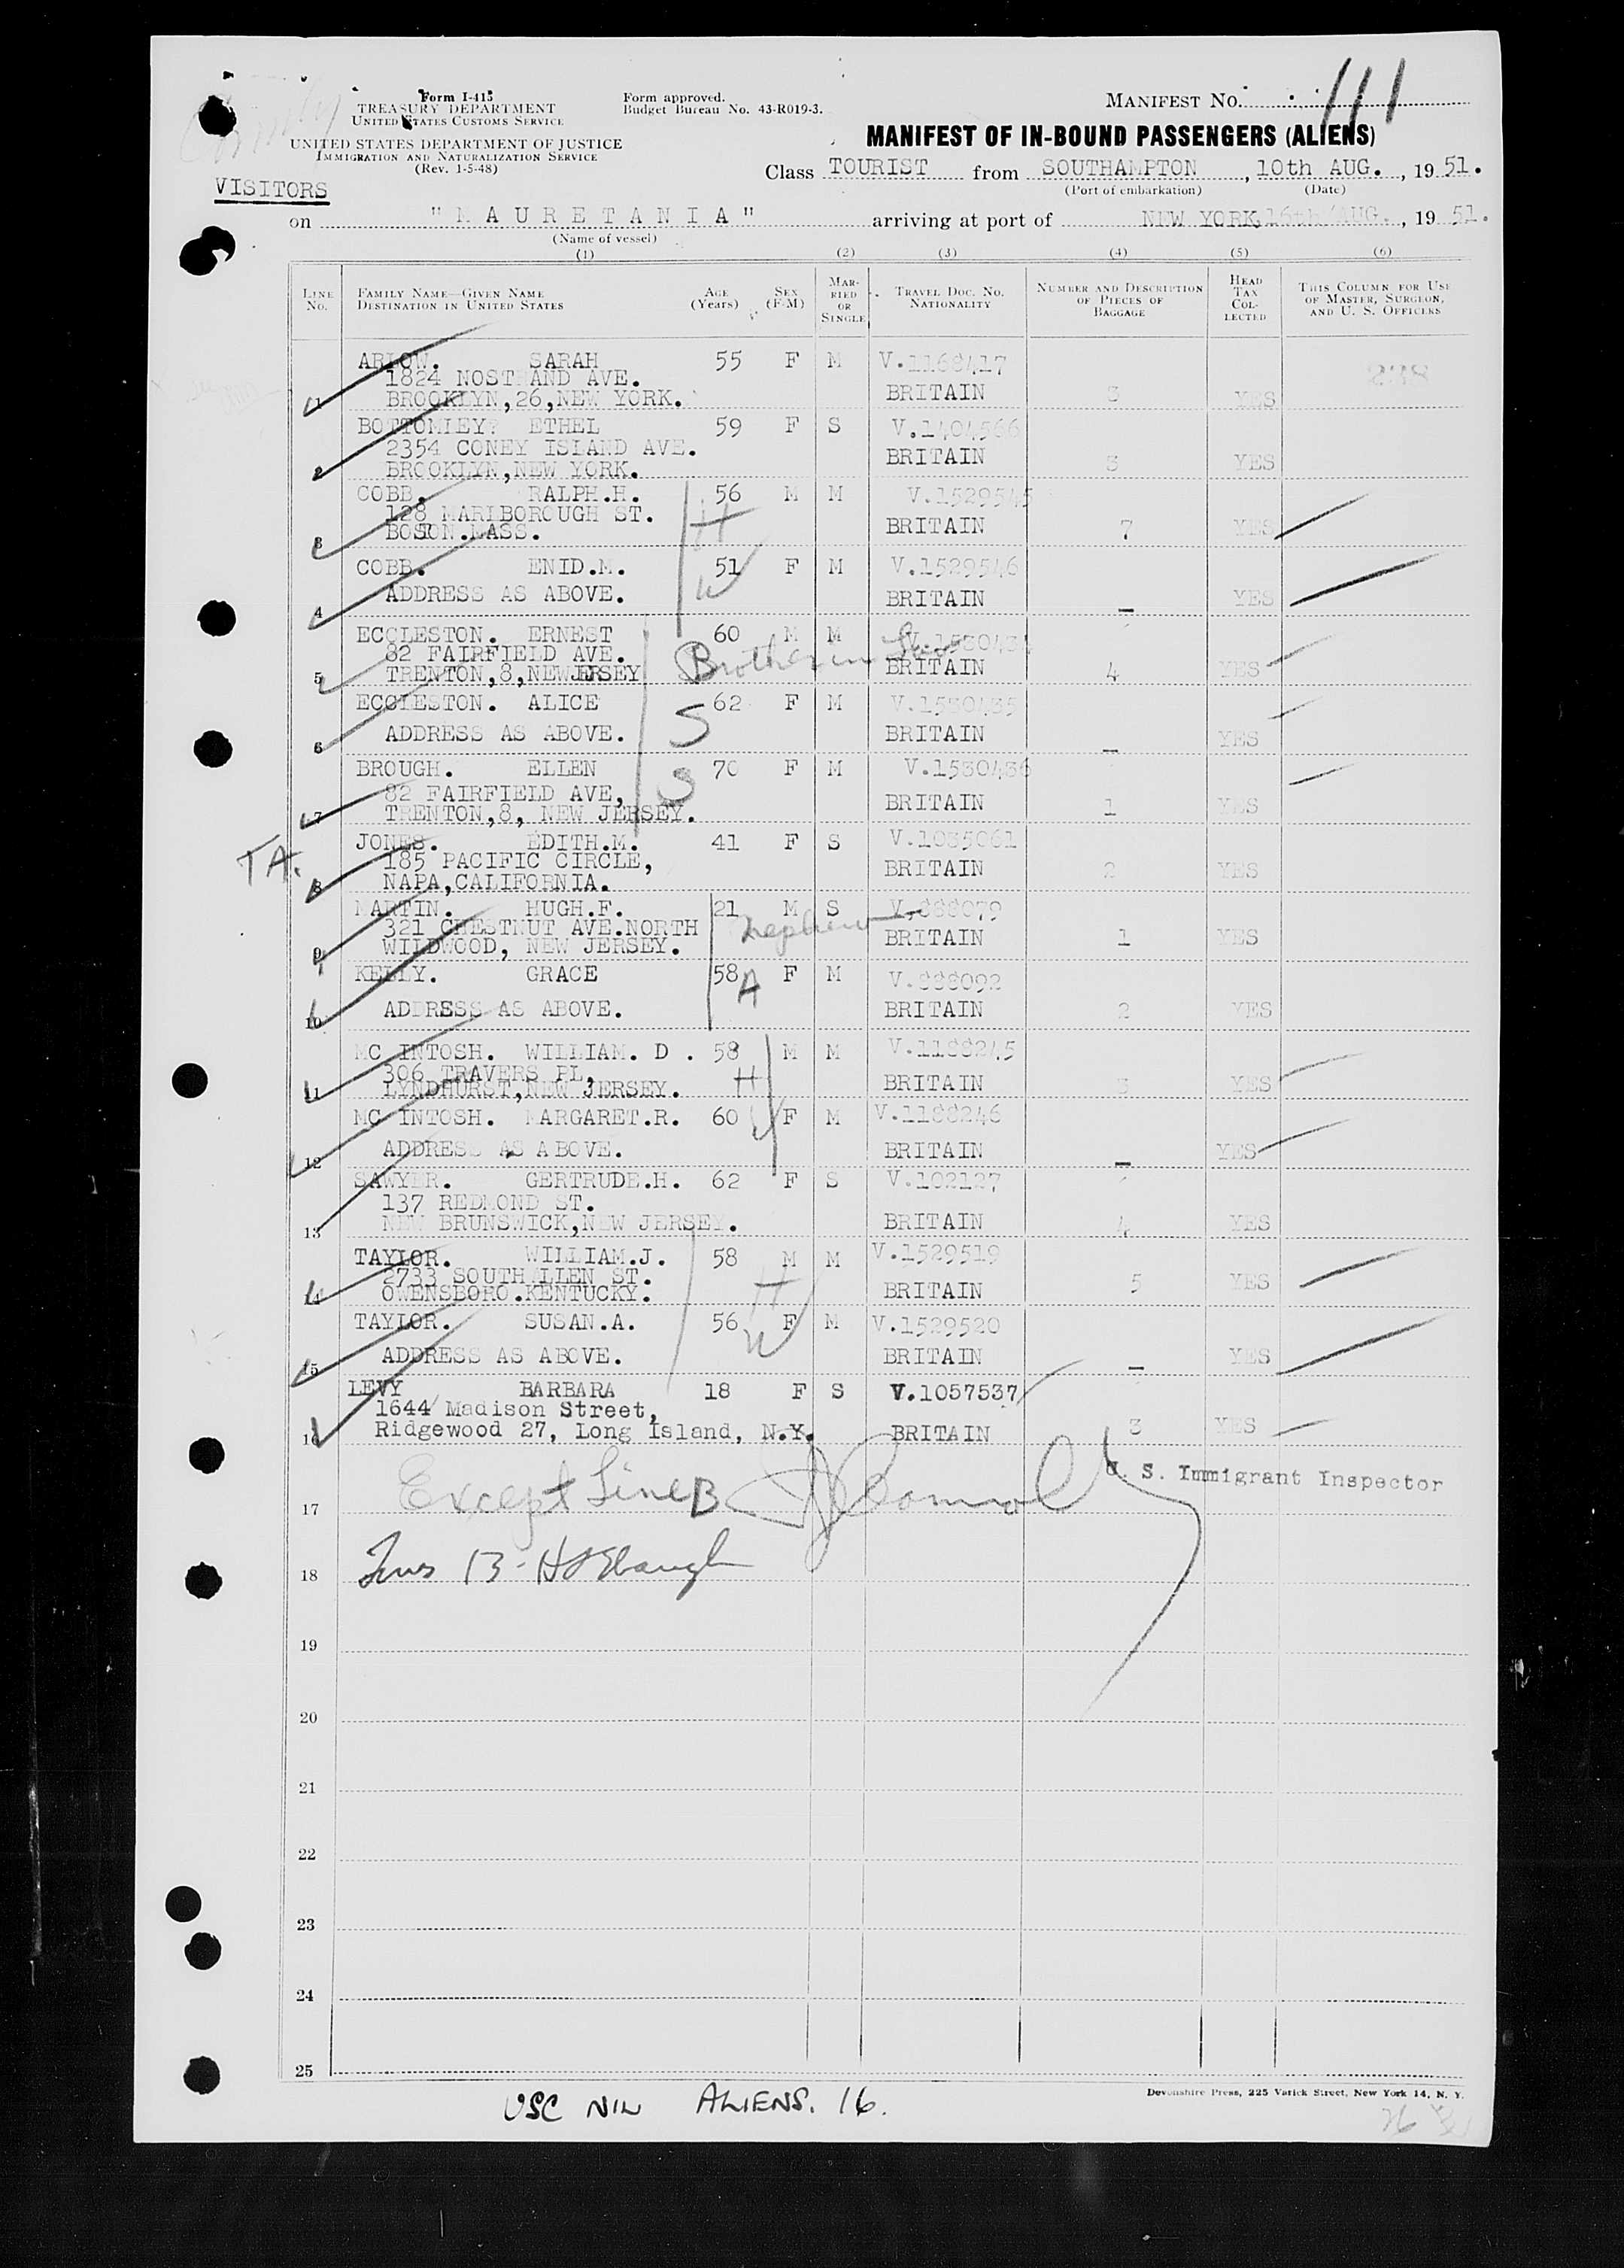 Form I-415
TREASURY DEPARTMENT
UNITED STATES CUSTOMS SERVICE
UNITED STATES DEPARTMENT OF JUSTICE
IMMIGRATION AND NATURALIZATION SERVICE
(Rev. 1-5-48)
VISITORS
Form approved.
Budget Bureau No. 43-R019-3.
MANIFEST NO. 111
MANIFEST OF IN-BOUND PASSENGERS (ALIENS)
Class TOURIST from SOUTHAMPTON, 10th AUG., 1951.
(Port of embarkation) (Date)
on "MAURETANIA" arriving at port of NEW YORK, 16th AUG., 1951.
(Name of vessel)
(1) (2) (3) (4) (5) (6)
LINE NO. FAMILY NAME—GIVEN NAME DESTINATION IN UNITED STATES AGE (Years) SEX (F-M) MARRIED OR SINGLE TRAVEL DOC. NO. NATIONALITY NUMBER AND DESCRIPTION OF PIECES OF BAGGAGE HEAD TAX COLLECTED THIS COLUMN FOR USE OF MASTER, SURGEON, AND U. S. OFFICERS
ARLOW. SARAH 55 F M V.1168417
1824 NOSTRAND AVE.
1 BROOKLYN,26,NEW YORK. BRITAIN YES
BOTTOMLEY. ETHEL 59 F S V.1404566
2354 CONEY ISLAND AVE.
2 BROOKLYN,NEW YORK. BRITAIN 3 YES
COBB. RALPH.H. 56 M M V.1529545
128 MARLBOROUGH ST. H
3 BOSTON.MASS. BRITAIN 7 YES
COBB. ENID.M. 51 F M V.1529546
4 ADDRESS AS ABOVE. W BRITAIN _ YES
ECCLESTON. ERNEST 60 M M V.1530434
82 FAIRFIELD AVE. Brother in law
5 TRENTON,8,NEW JERSEY BRITAIN 4 YES
ECCLESTON. ALICE 62 F M V.1530435
6 ADDRESS AS ABOVE. S BRITAIN _ YES
BROUGH. ELLEN 70 F M V.1530436
82 FAIRFIELD AVE, S
7 TRENTON,8, NEW JERSEY. BRITAIN 1 YES
JONES. EDITH.M. 41 F S V.1035061
TA. 185 PACIFIC CIRCLE,
8 NAPA,CALIFORNIA. BRITAIN 2 YES
MARTIN. HUGH.F. 21 M S V.888079
321 CHESTNUT AVE.NORTH nephew
9 WILDWOOD, NEW JERSEY. BRITAIN 1 YES
KELLY. GRACE 58 A F M V.888092
10 ADDRESS AS ABOVE. BRITAIN 2 YES
MC INTOSH. WILLIAM. D . 58 M M V.1188245
306 TRAVERS PL,
11 LYNDHURST,NEW JERSEY. H BRITAIN 3 YES
MC INTOSH. MARGARET.R. 60 W F M V.1188246
12 ADDRESS AS ABOVE. BRITAIN _ YES
SAWYER. GERTRUDE.H. 62 F S V.102127
137 REDMOND ST.
13 NEW BRUNSWICK,NEW JERSEY. BRITAIN 4 YES
TAYLOR. WILLIAM.J. 58 M M V.1529519
2733 SOUTH ALLEN ST. H
14 OWENSBORO.KENTUCKY. BRITAIN 5 YES
TAYLOR. SUSAN.A. 56 F M V.1529520
15 ADDRESS AS ABOVE. W BRITAIN _ YES
LEVY BARBARA 18 F S V.1057537
1644 Madison Street,
16 Ridgewood 27, Long Island, N.Y. BRITAIN 3 YES
Except Line 13
U. S. Immigrant Inspector
17
18 13
19
20
21
22
23
24
25
USC NIL ALIENS. 16.
Devonshire Press, 225 Varick Street, New York 14, N. Y.